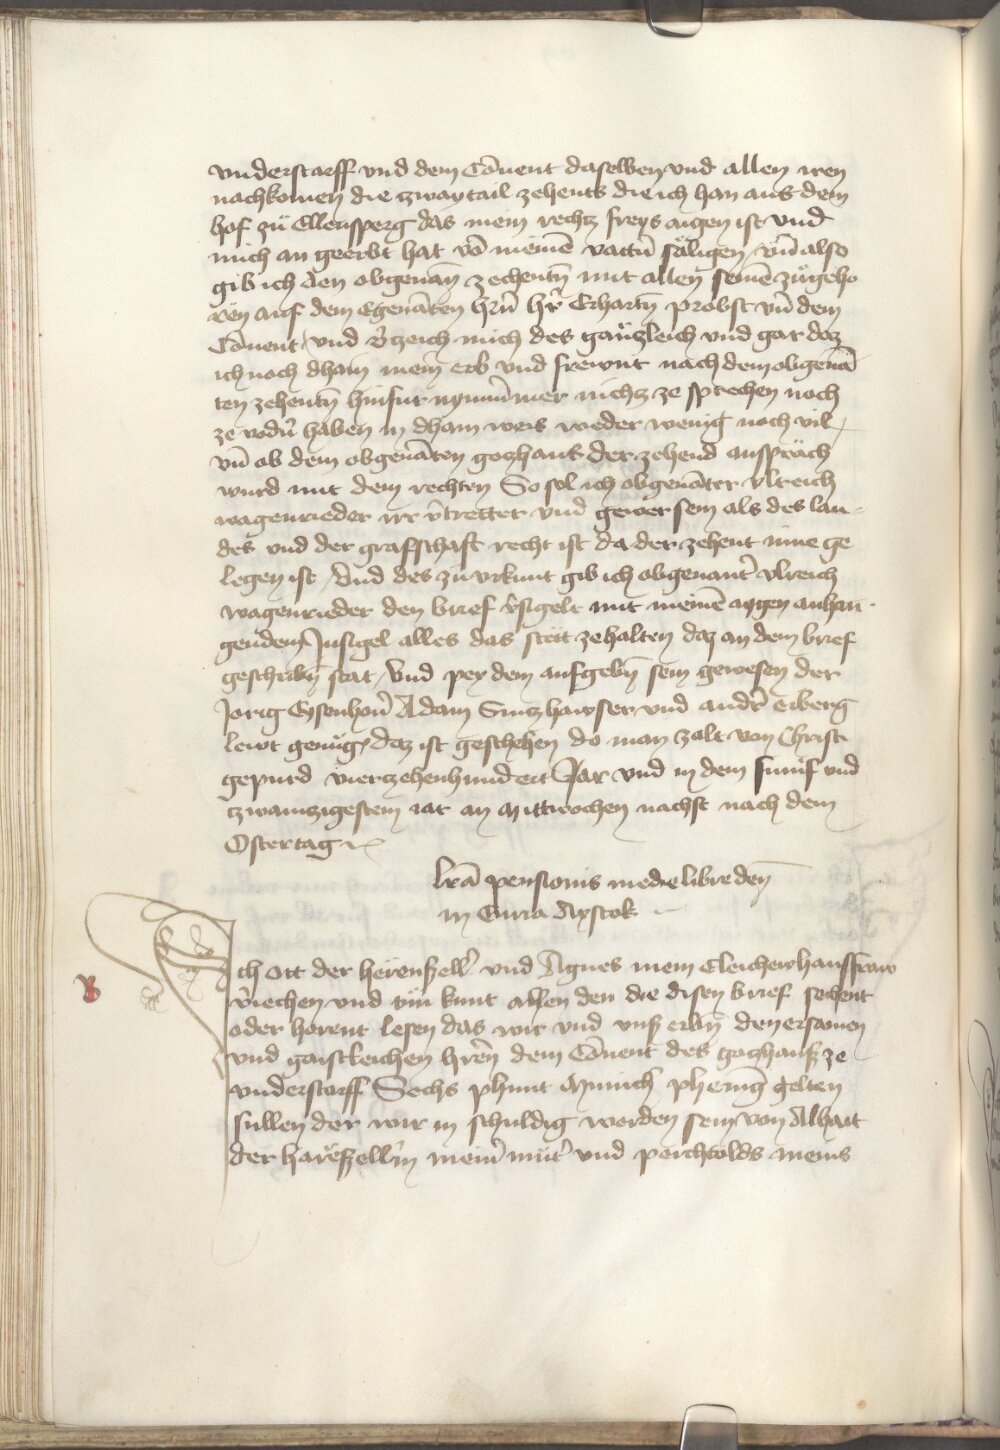 vnderstorff vnd dem Cōuent daselben vnd allen iren
nachkomen die zway tail zehents die ich han aus dem
hof zů Ellensperg das mein rechtz freys aigen ist vnd
mich an geerbt hat vō meinē vattn̄ säligen vn̄ also
gib ich den obgenan̄ zechentn̄ mit allen seinē zůgeho
ren auf dem Egenāten hern̄ hr̄ Erhartn̄ probst vn̄ dem
Cōuent vnd v̄zeich mich des gänzleich vnd gar daz
ich noch dhain mein̄ erb vnd frewnt nach dem obgenā
ten zehentn̄ hinfur nymmer nichtz ze sprechen noch
ze vodn̄ haben in dhain weis weder wenig noch vil
vn̄ ob dem obgenāten gozhaus der zehend anspräch
wurd mit dem rechten So sol ich obgenāter vlreich
wagenrieder irr v̄tretter vnd gewer sein als des lan-
des vnd der grafschaft recht ist da der zehent inne ge
legen ist / Vnd des zů vrkunt gib ich obgenant̄ vlreich
wagenrieder den brief v̄sigelt mit meinē aygen anhan-
gendem Insigel alles das stät ze halten daz an dem brief
geschribn̄ stat / Vnd pey dem aufgebn̄ sein gewesen der
Jorig Eysenhou̅ Adam Sinzhawser vnd andr̄ erberg
lewt genůg / daz ist geschehen do man zalt von Christ
gepurd vierzehenhundert Jar vnd in dem funf vnd
zwainzigestem iar an Mittwochen nachst nach dem
Ostertag
lr̄a pensionis medie libre den̄
in Curia Axstok
Ich Ott der herenzell̄ vnd Agnes mein Eleichew hausfraw
v̄iechen vnd tůn kunt allen den die disen brief sechent
oder horent lesen das wir vnd vnsz erbn̄ den ersamen
vnd gaistleichen hr̄en dem Cōuent des gozhausz ze
vnderstorff Sechs phunt Münich phenig̅ gelten
sullen der wir in schuldig worden sein von Alhait
der härezellr̄in mein̄ můt̄ vnd perchtolds meins
B